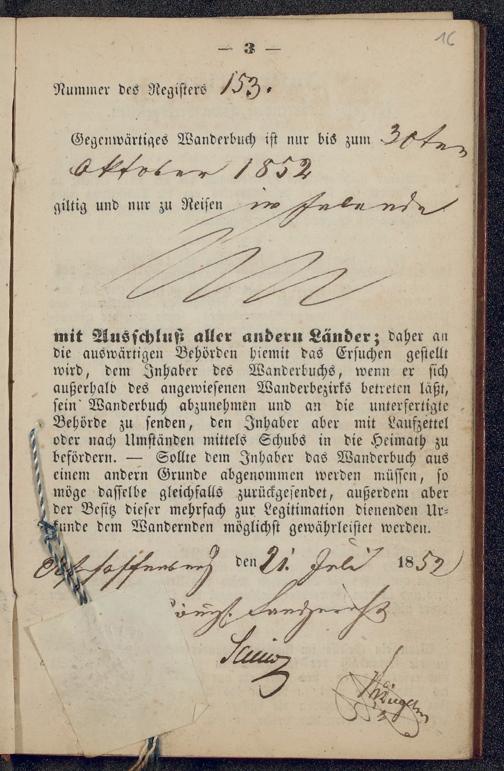 16
— 3 —
Nummer des Registers 153.
Gegenwärtiges Wanderbuch ist nur bis zum 30ten
Oktober 1852
giltig und nur zu Reisen im Inlande
mit Ausschluß aller andern Länder; daher an
die auswärtigen Behörden hiemit das Ersuchen gestellt
wird, dem Inhaber des Wanderbuchs, wenn er sich
außerhalb des angewiesenen Wanderbezirks betreten läßt,
sein Wanderbuch abzunehmen und an die unterfertigte
Behörde zu senden, den Inhaber aber mit Laufzettel
oder nach Umständen mittels Schubs in die Heimath zu
befördern. — Sollte dem Inhaber das Wanderbuch aus
einem andern Grunde abgenommen werden müssen, so
möge dasselbe gleichfalls zurückgesendet, außerdem aber
der Besitz dieser mehrfach zur Legitimation dienenden Ur-
kunde dem Wandernden möglichst gewährleistet werden.
den 21. Juli 1852
königl. Landgericht